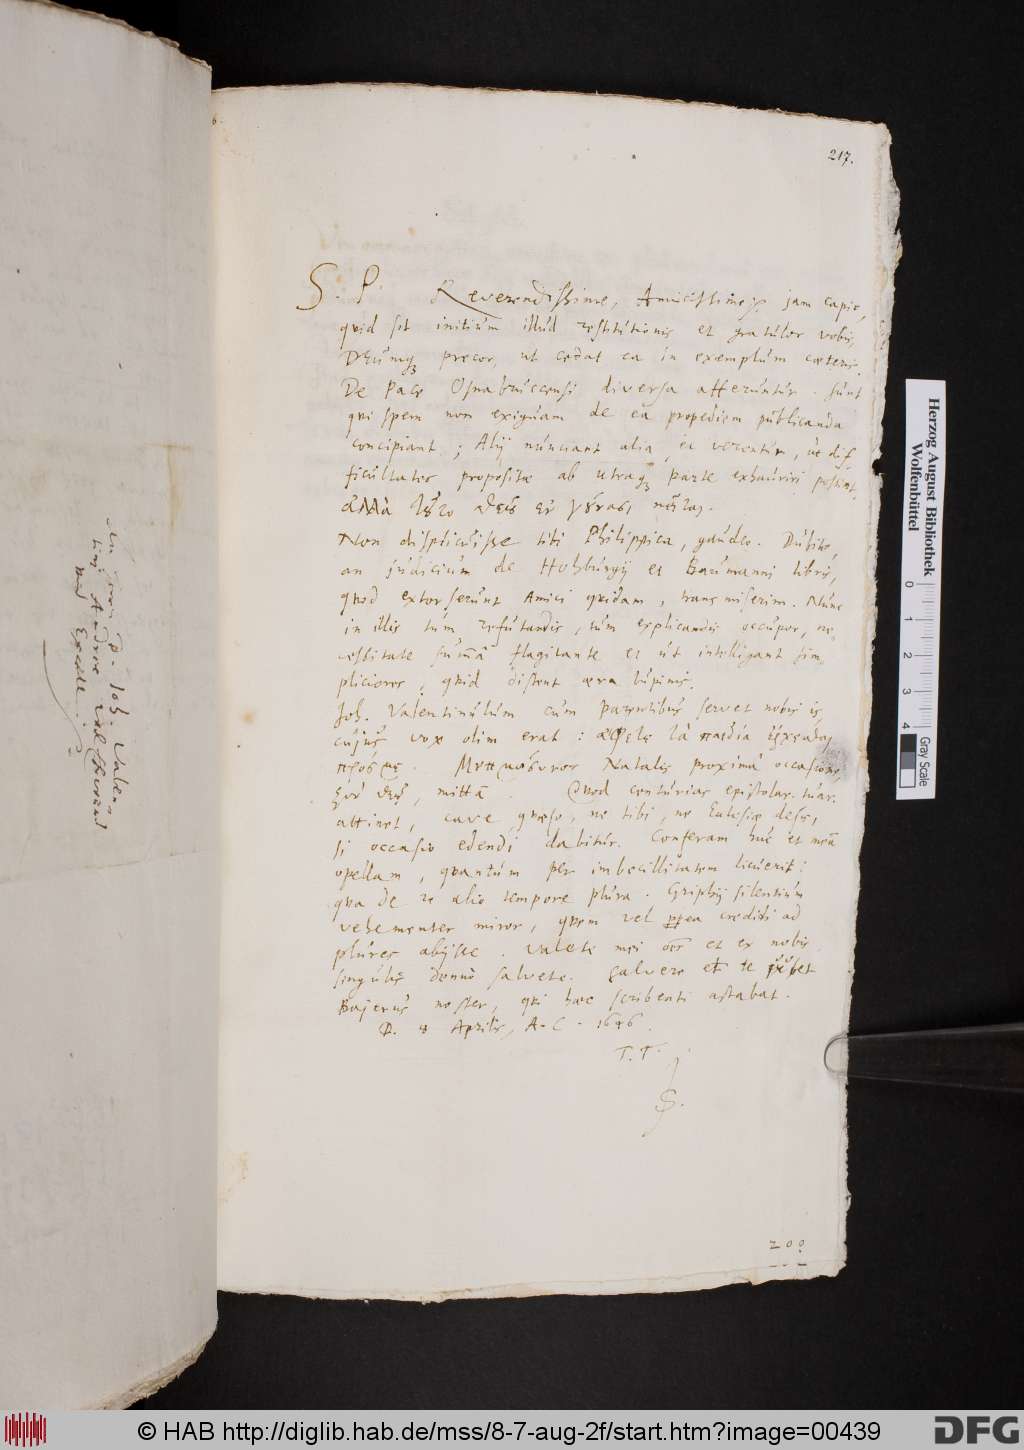 217.
S. P. Reverendissime, Amicissimeq; jam capio,
quid sit initium illud restitutionis et gratulor vobis,
Deumq; precor, ut cedat ea in exemplum cæteris.
De Pace Osnabruccensi diversa afferuntur. sunt
qui spem non exiguam de ea propediem publicanda
concipiant; Alij nunciant alia, et verentur, ut dif-
ficultates propositæ ab utraq; parte exhauriri possint,
ἀλλὰ
Non displicuisse tibi Philippica, gaudeo. Dubito,
an judicium de Holzburgij et Baumanni libris,
quod extorserunt Amici quidam, transmiserim. Nunc
in illis tum refutandis, tum explicandis occupor, ne-
cessitate summâ flagitante et ut intelligant sim-
pliciores, quid distent æra lupinis.
Joh. Valentinulum cum parentibus servet nobis is,
cujus vox olim erat: ἄφετε τὰ παιδία ἔρχεσθαι
πρός με. Natalis proximâ occasione
mittā. Quod centurias epistolar. tuar.
attinet, cave, quæso, ne tibi, ne Ecclesiæ desis,
si occasio edendi dabitur. Conferam huc et meā
opellam, quantum per imbecillitatem licuerit:
qua de re alio tempore plura. Gryphij silentium
vehementer miror, quem vel ppea credidi ad
plures abijsse. Valete mei oēs et ex nobis
singulis denuo salvete. Salvere et te jubet
Bajerus noster, qui hæc scribenti astabat.
D. 8 Aprilis, A. C. 1646.
T. T.
S.
200
Joh. Valen-
tini Andreæ
Herzog August Bibliothek
Wolfenbüttel
0 1 2 3 4
Gray Scale
© HAB http://diglib.hab.de/mss/8-7-aug-2f/start.htm?image=00439
DFG